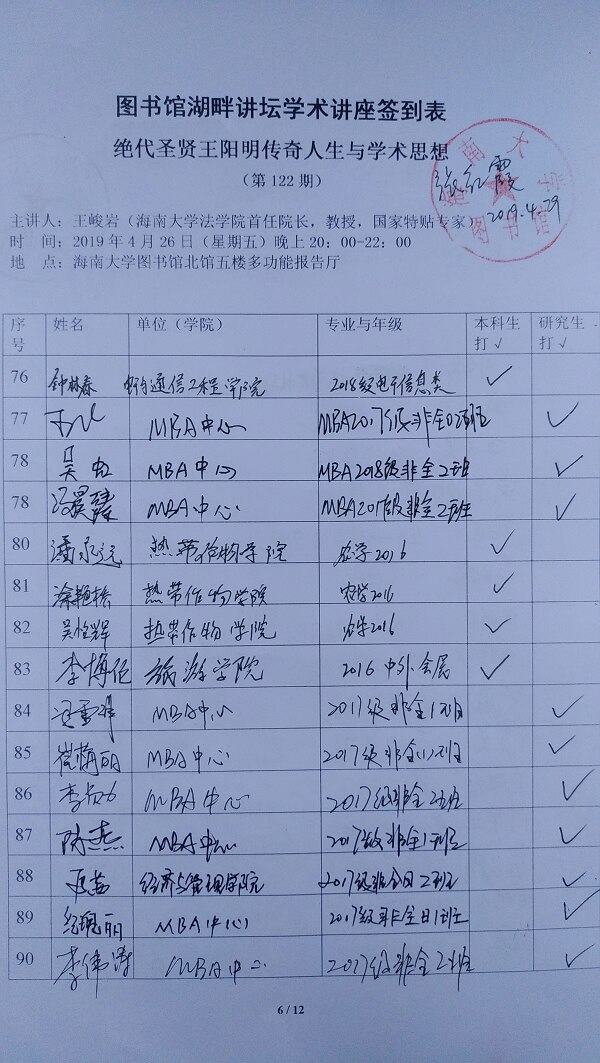 图书馆湖畔讲坛学术讲座签到表
绝代圣贤王阳明传奇人生与学术思想
（第 122 期）
海南大学图书馆
张红霞
2019.4.29
主讲人：王峻岩（海南大学法学院首任院长，教授，国家特贴专家）
时 间：2019 年 4 月 26 日（星期五）晚上 20：00-22：00
地 点：海南大学图书馆北馆五楼多功能报告厅
序号 姓名 单位（学院） 专业与年级 本科生打√ 研究生打√
76 钟林春 信息与通信工程学院 2018级电子信息类 √
77 MBA中心 MBA2017级非全2班 √
78 吴虹 MBA中心 MBA2018级非全2班 √
78 冯晨 MBA中心 MBA2017级非全2班 √
80 潘永远 热带作物学院 农学2016 √
81 涂艳 热带作物学院 农学2016 √
82 吴怡辉 热带作物学院 农学2016 √
83 李博伦 旅游学院 2016 中外会展 √
84 MBA中心 2017级非全1班 √
85 梅丽 MBA中心 2017级非全(1)班 √
86 李 MBA中心 2017级非全2班 √
87 陈燕 MBA中心 2017级非全1班 √
88 经济与管理学院 2017级非全日2班 √
89 纪瑰丽 MBA中心 2017级非全日1班 √
90 李伟涛 MBA中心 2017级非全2班 √
6 / 12